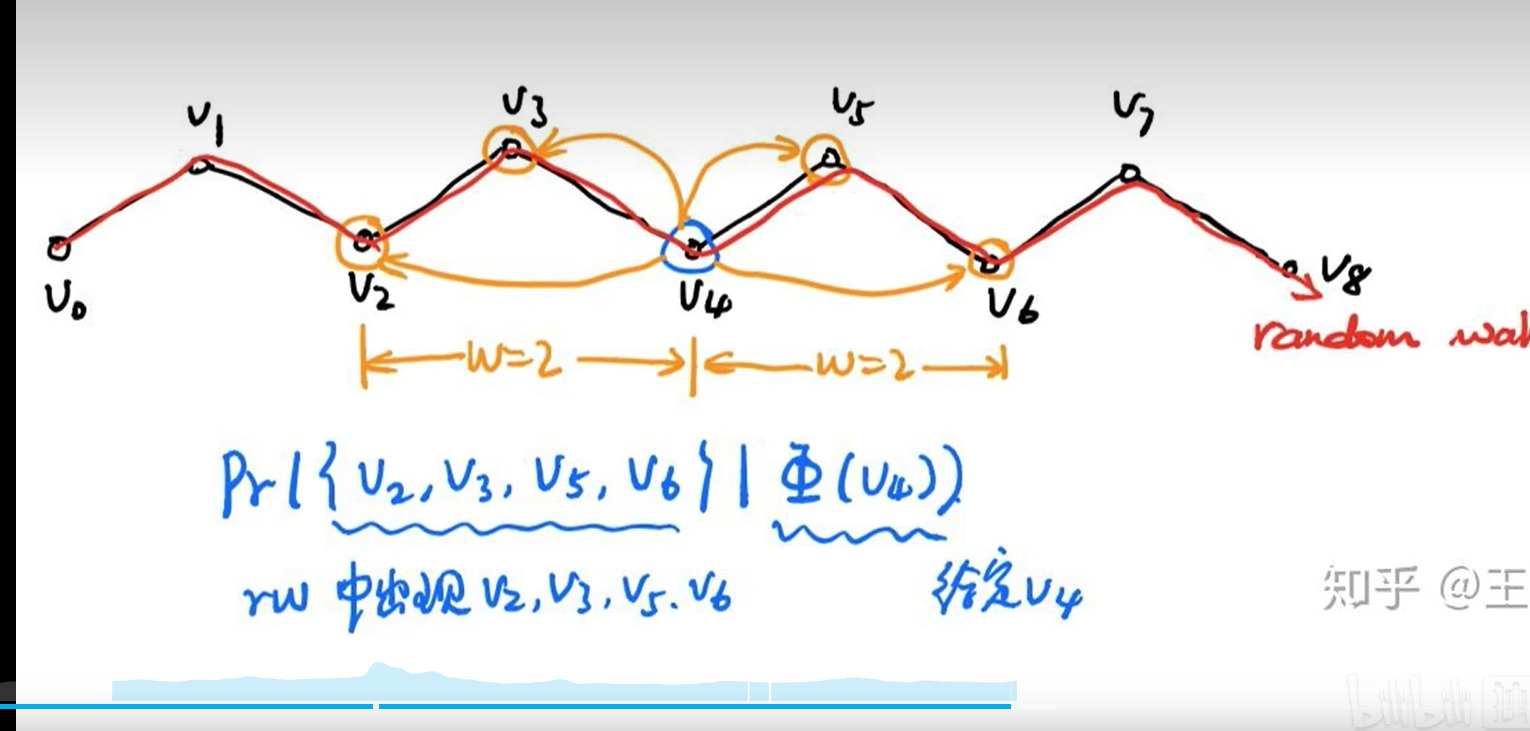 v1 v3 v5 v7
v0 v2 v4 v6 v8
random
w=2 w=2
Pr({v2, v3, v5, v6} | Φ(v4))
rw 中出现 v2, v3, v5. v6 给定v4
知乎 @王
bilibili